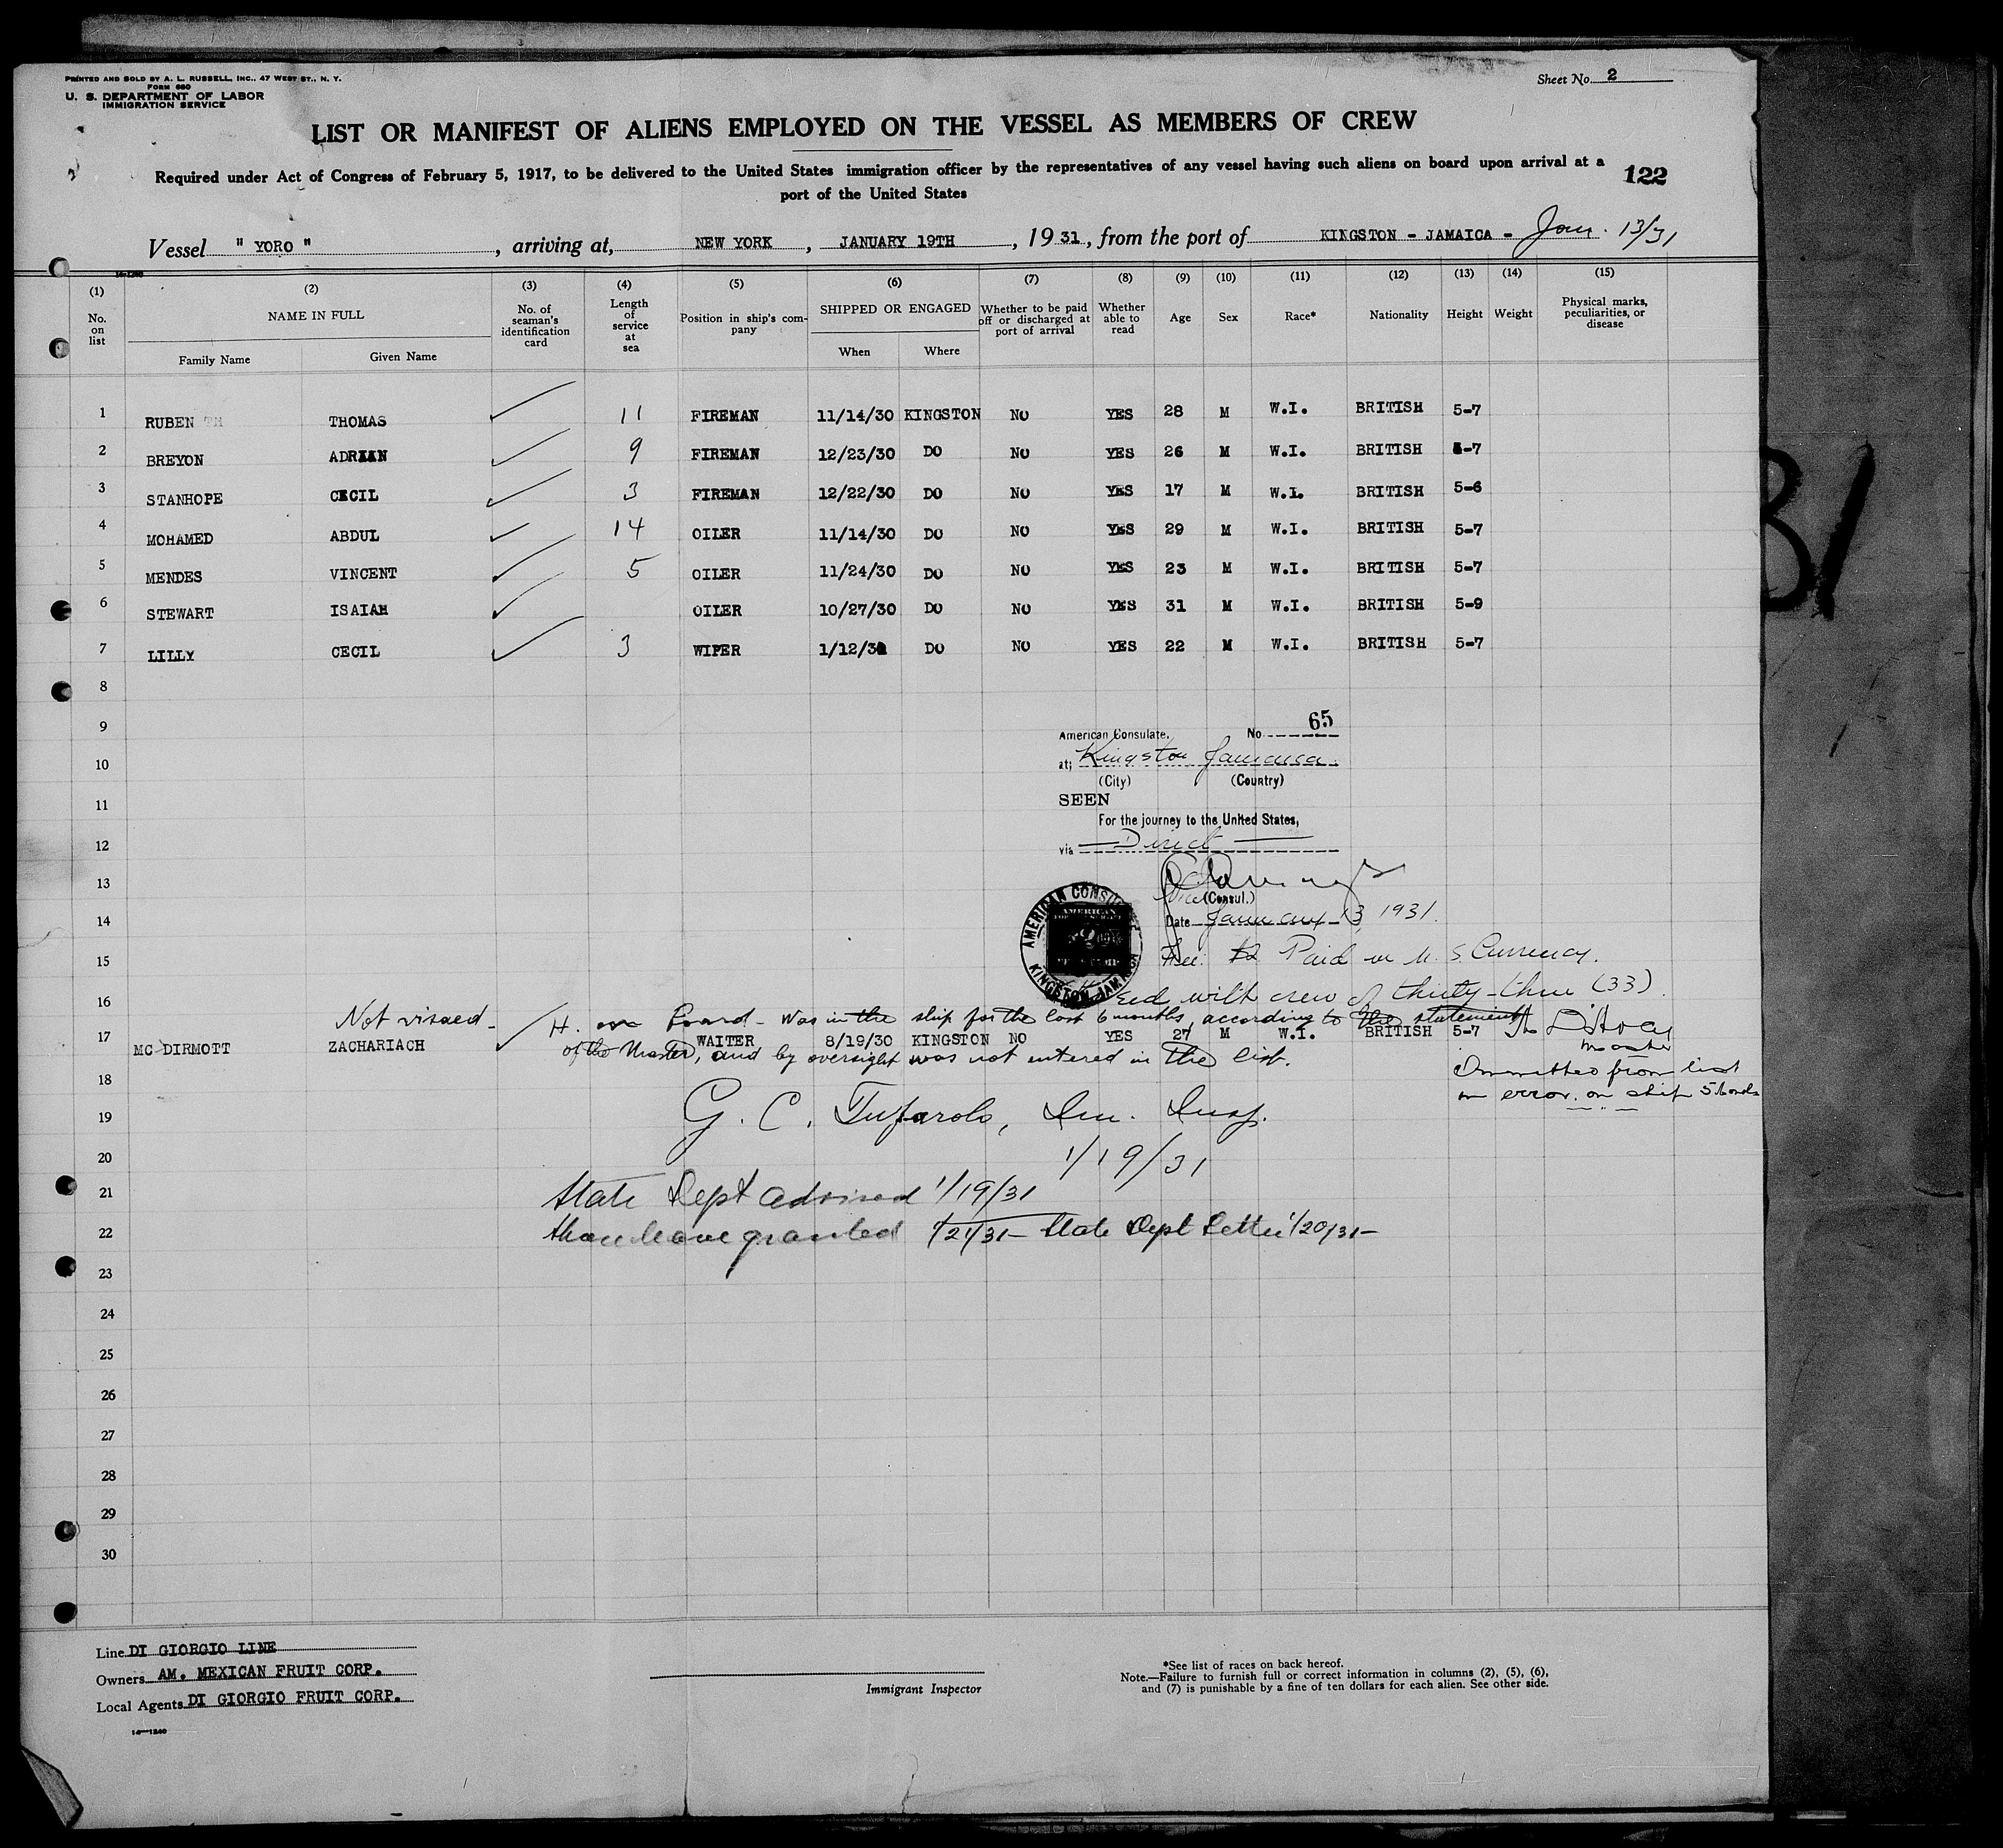 PRINTED AND SOLD BY A. L. RUSSELL, INC., 47 WEST ST., N. Y.
FORM 680
U. S. DEPARTMENT OF LABOR
IMMIGRATION SERVICE
Sheet No. 2
LIST OR MANIFEST OF ALIENS EMPLOYED ON THE VESSEL AS MEMBERS OF CREW
Required under Act of Congress of February 5, 1917, to be delivered to the United States immigration officer by the representatives of any vessel having such aliens on board upon arrival at a
port of the United States
122
Vessel " YORO ", arriving at, NEW YORK, JANUARY 19TH, 1931, from the port of KINGSTON - JAMAICA - Jan. 13/31
14-1240
(1) (2) (3) (4) (5) (6) (7) (8) (9) (10) (11) (12) (13) (14) (15)
No. on list NAME IN FULL Family Name Given Name No. of seaman's identification card Length of service at sea Position in ship's company SHIPPED OR ENGAGED When Where Whether to be paid off or discharged at port of arrival Whether able to read Age Sex Race* Nationality Height Weight Physical marks, peculiarities, or disease
1 RUBEN TH THOMAS 11 FIREMAN 11/14/30 KINGSTON NO YES 28 M W.I. BRITISH 5-7
2 BREYON ADRIAN 9 FIREMAN 12/23/30 DO NO YES 26 M W.I. BRITISH 5-7
3 STANHOPE CECIL 3 FIREMAN 12/22/30 DO NO YES 17 M W.I. BRITISH 5-6
4 MOHAMED ABDUL 14 OILER 11/14/30 DO NO YES 29 M W.I. BRITISH 5-7
5 MENDES VINCENT 5 OILER 11/24/30 DO NO YES 23 M W.I. BRITISH 5-7
6 STEWART ISAIAH OILER 10/27/30 DO NO YES 31 M W.I. BRITISH 5-9
7 LILLY CECIL 3 WIPER 1/12/31 DO NO YES 22 M W.I. BRITISH 5-7
8
9
American Consulate, No. 65
10
at; Kingston Jamaica
(City) (Country)
11
SEEN
For the journey to the United States,
12
via Direct
13
Vice (Consul.)
14
Date January 13, 1931.
AMERICAN CONSULATE
KINGSTON, JAMAICA
15
Fee: $2 Paid in U. S. Currency.
16
with crew of thirty-three (33)
Not visaed -
on board - Was in the ship for the last 6 months, according to the statement
17 MC DIRMOTT ZACHARIACH WAITER 8/19/30 KINGSTON NO YES 27 M W.I. BRITISH 5-7
master
of the Master, and by oversight was not entered in the list.
18
Ommitted from list
in error. on ship 5
19
G. C. Tufarolo, Im. Insp.
20
1/19/31
21
State Dept advised 1/19/31
22
Shore leave granted 1/21/31 - State Dept Letter 1/20/31 -
23
24
25
26
27
28
29
30
Line DI GIORGIO LINE
Owners AM. MEXICAN FRUIT CORP.
Local Agents DI GIORGIO FRUIT CORP.
14-1240
Immigrant Inspector
*See list of races on back hereof.
Note.—Failure to furnish full or correct information in columns (2), (5), (6),
and (7) is punishable by a fine of ten dollars for each alien. See other side.